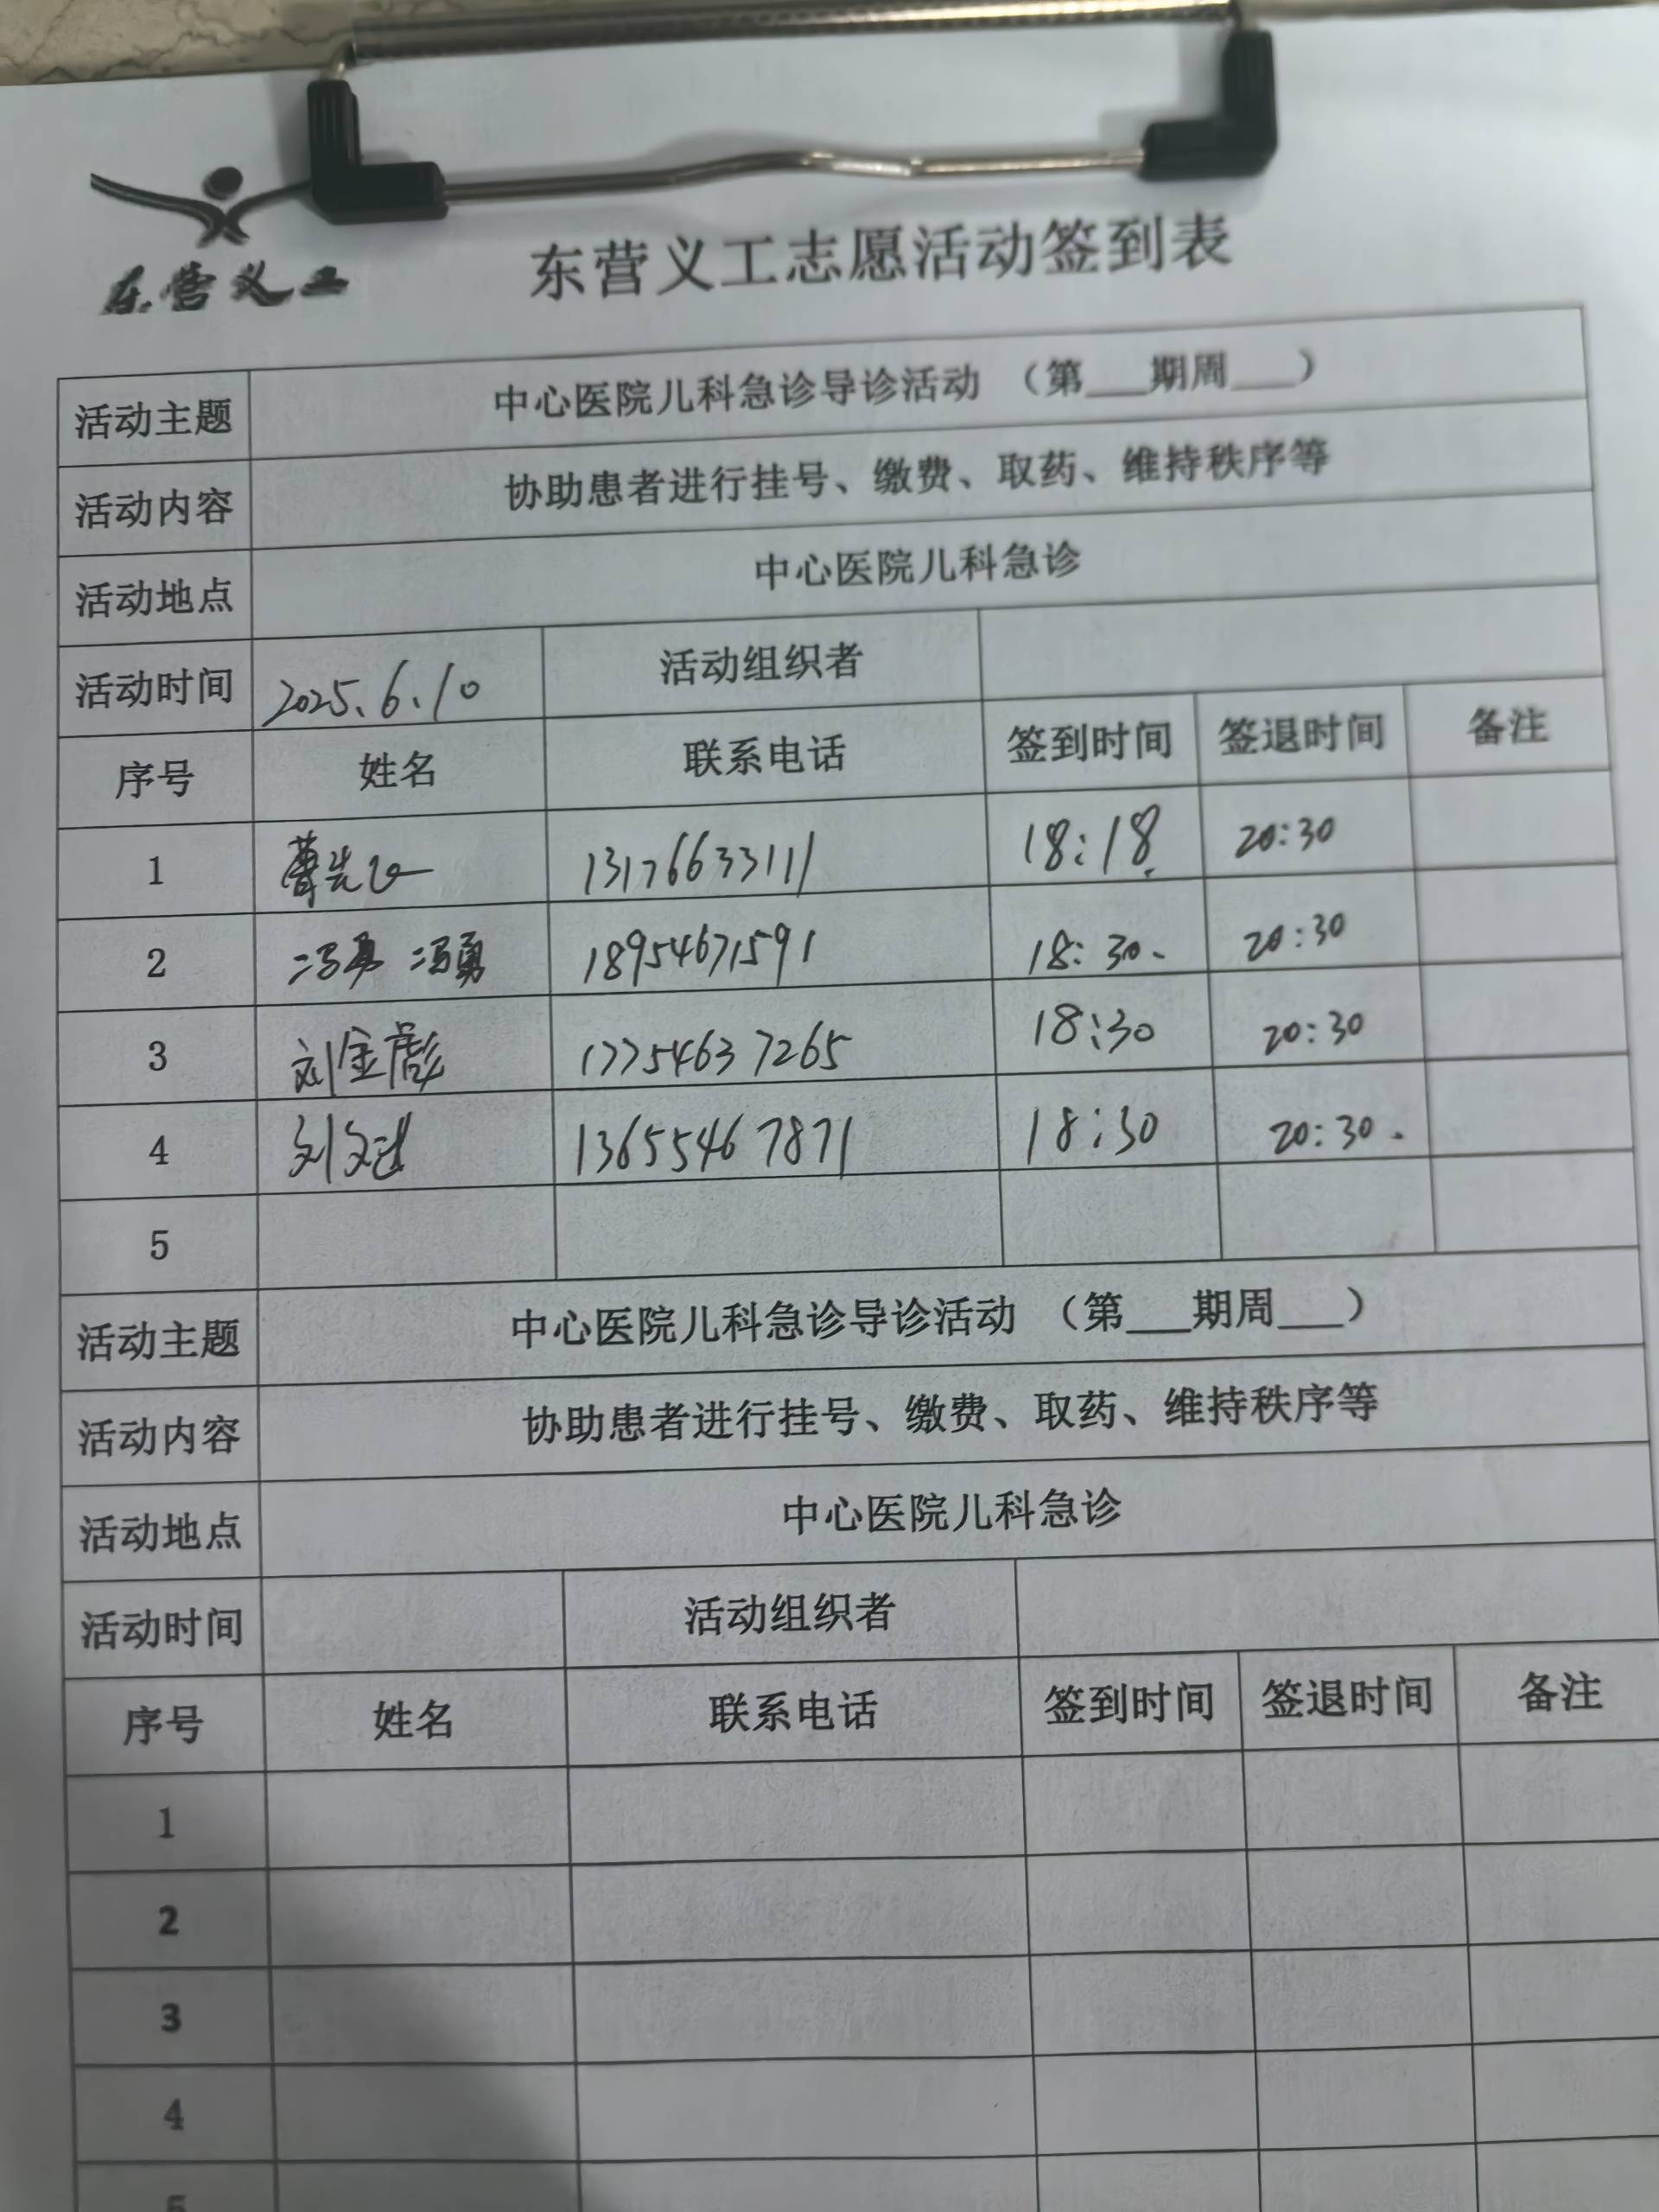 东营义工
东营义工志愿活动签到表
活动主题 中心医院儿科急诊导诊活动 （第___期周___）
活动内容 协助患者进行挂号、缴费、取药、维持秩序等
活动地点 中心医院儿科急诊
活动时间 2025.6.10 活动组织者
序号 姓名 联系电话 签到时间 签退时间 备注
1 13176633111 18:18. 20:30
2 冯勇 冯勇 18954671591 18:30. 20:30
3 刘金彪 17754637265 18:30 20:30
4 刘文 13655467871 18:30 20:30.
5
活动主题 中心医院儿科急诊导诊活动 （第___期周___）
活动内容 协助患者进行挂号、缴费、取药、维持秩序等
活动地点 中心医院儿科急诊
活动时间 活动组织者
序号 姓名 联系电话 签到时间 签退时间 备注
1
2
3
4
5